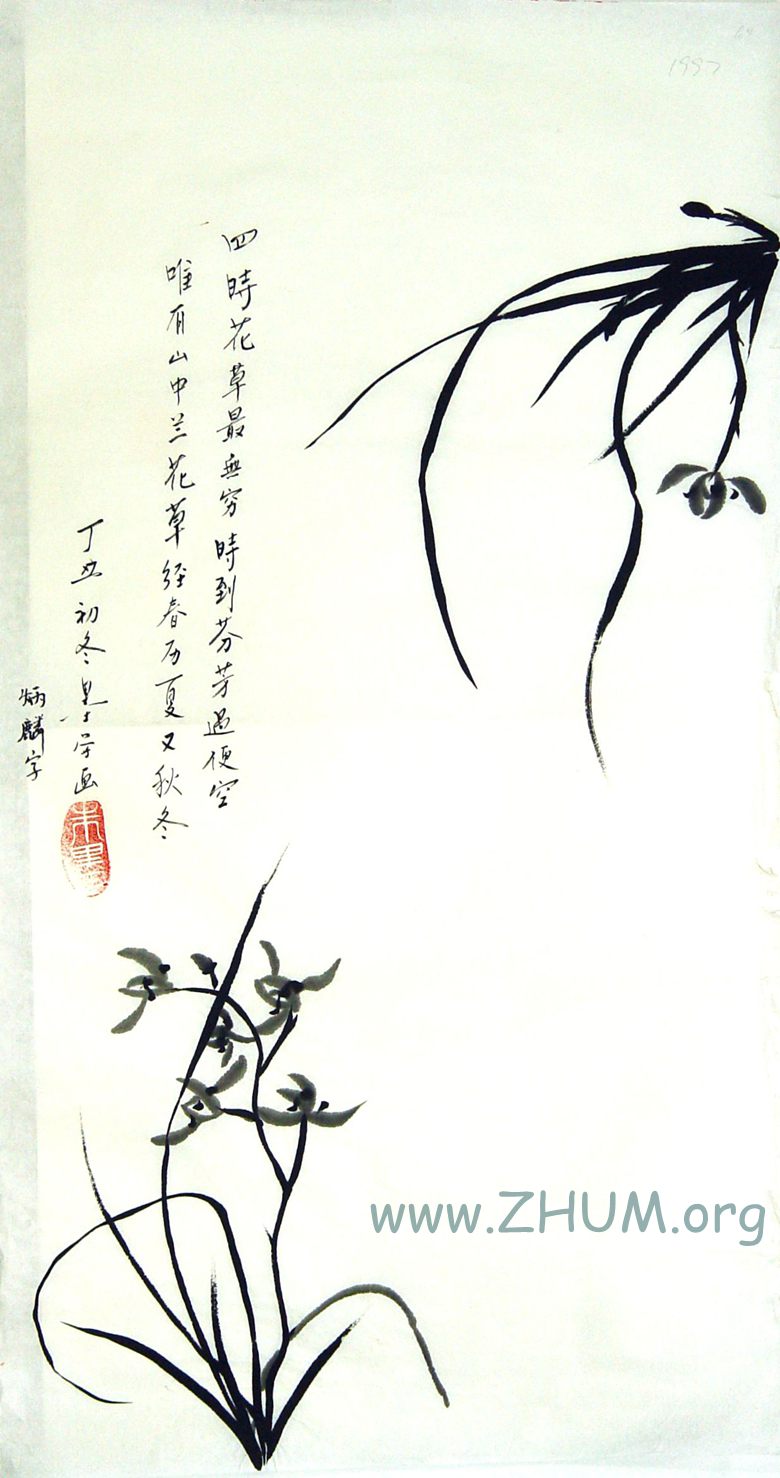 1997
四時花草最無穷時到芬芳過便空
唯有山中兰花草经春历夏又秋冬
丁丑初冬学画
炳麟字
www.ZHUM.org